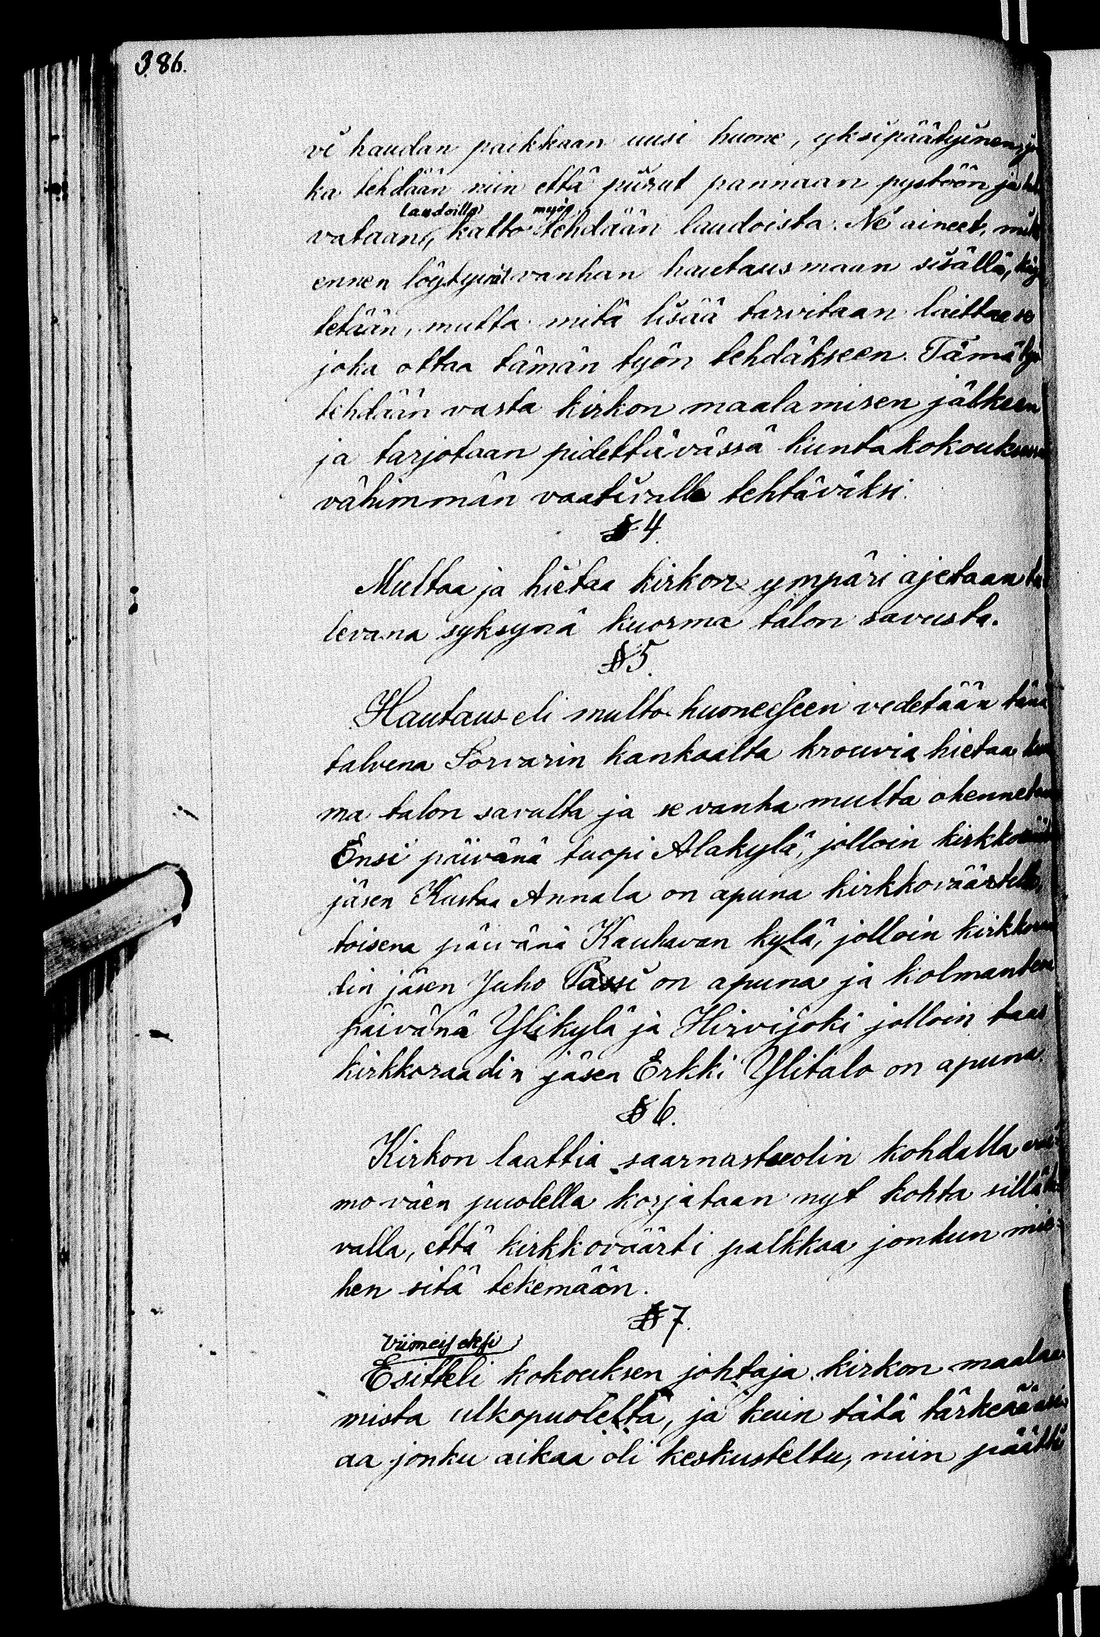 386.
vi haudan paikkaan uusi huone, yksipäätyinen, jo
ka tehdään niin että piirut pannaan pystöön ja
laudoilla myös
vataan, katto tehdään laudoista. Ne aineet, mitä
ennen löytyvät vanhan hautausmaan sisällä, käy
tetään, mutta mitä lisää tarvitaan laittaa se
joka ottaa tämän työn tehdäkseen. Tämä työ
tehdään vasta kirkon maalamisen jälkeen
ja tarjotaan pidettävässä kuntakokouksessa
vähimmän vaativalle tehtäväksi.
§ 4.
Multaa ja hietaa kirkon ympäri ajetaan tu
levana syksynä kuorma talon savusta.
§ 5.
Hautaus eli multa huoneeseen vedetään tänä
talvena Sorvarin kankaalta krouvia hietaa kuor
ma talon savulta ja se vanha multa ohennetaan
Ensi päivänä tuopi Alakylä, jolloin kirkkoraadin
jäsen Kustaa Annala on apuna kirkkoväärtille,
toisena päivänä Kauhavan kylä, jolloin kirkkoraa
din jäsen Juho Passi on apuna ja kolmantena
päivänä Ylikylä ja Hirvijoki jolloin taas
kirkkoraadin jäsen Erkki Ylitalo on apuna.
§ 6.
Kirkon laattia saarnastuolin kohdalla vai=
moväen puolella korjataan nyt kohta sillä ta
valla, että kirkkoväärti palkkaa jonkun mie=
hen sitä tekemään.
§ 7.
Viimeiseksi
Esitteli kokouksen johtaja kirkon maalaa
mista ulkopuolelta, ja kuin tätä tärkeää asi
aa jonku aikaa oli keskusteltu, niin päätti